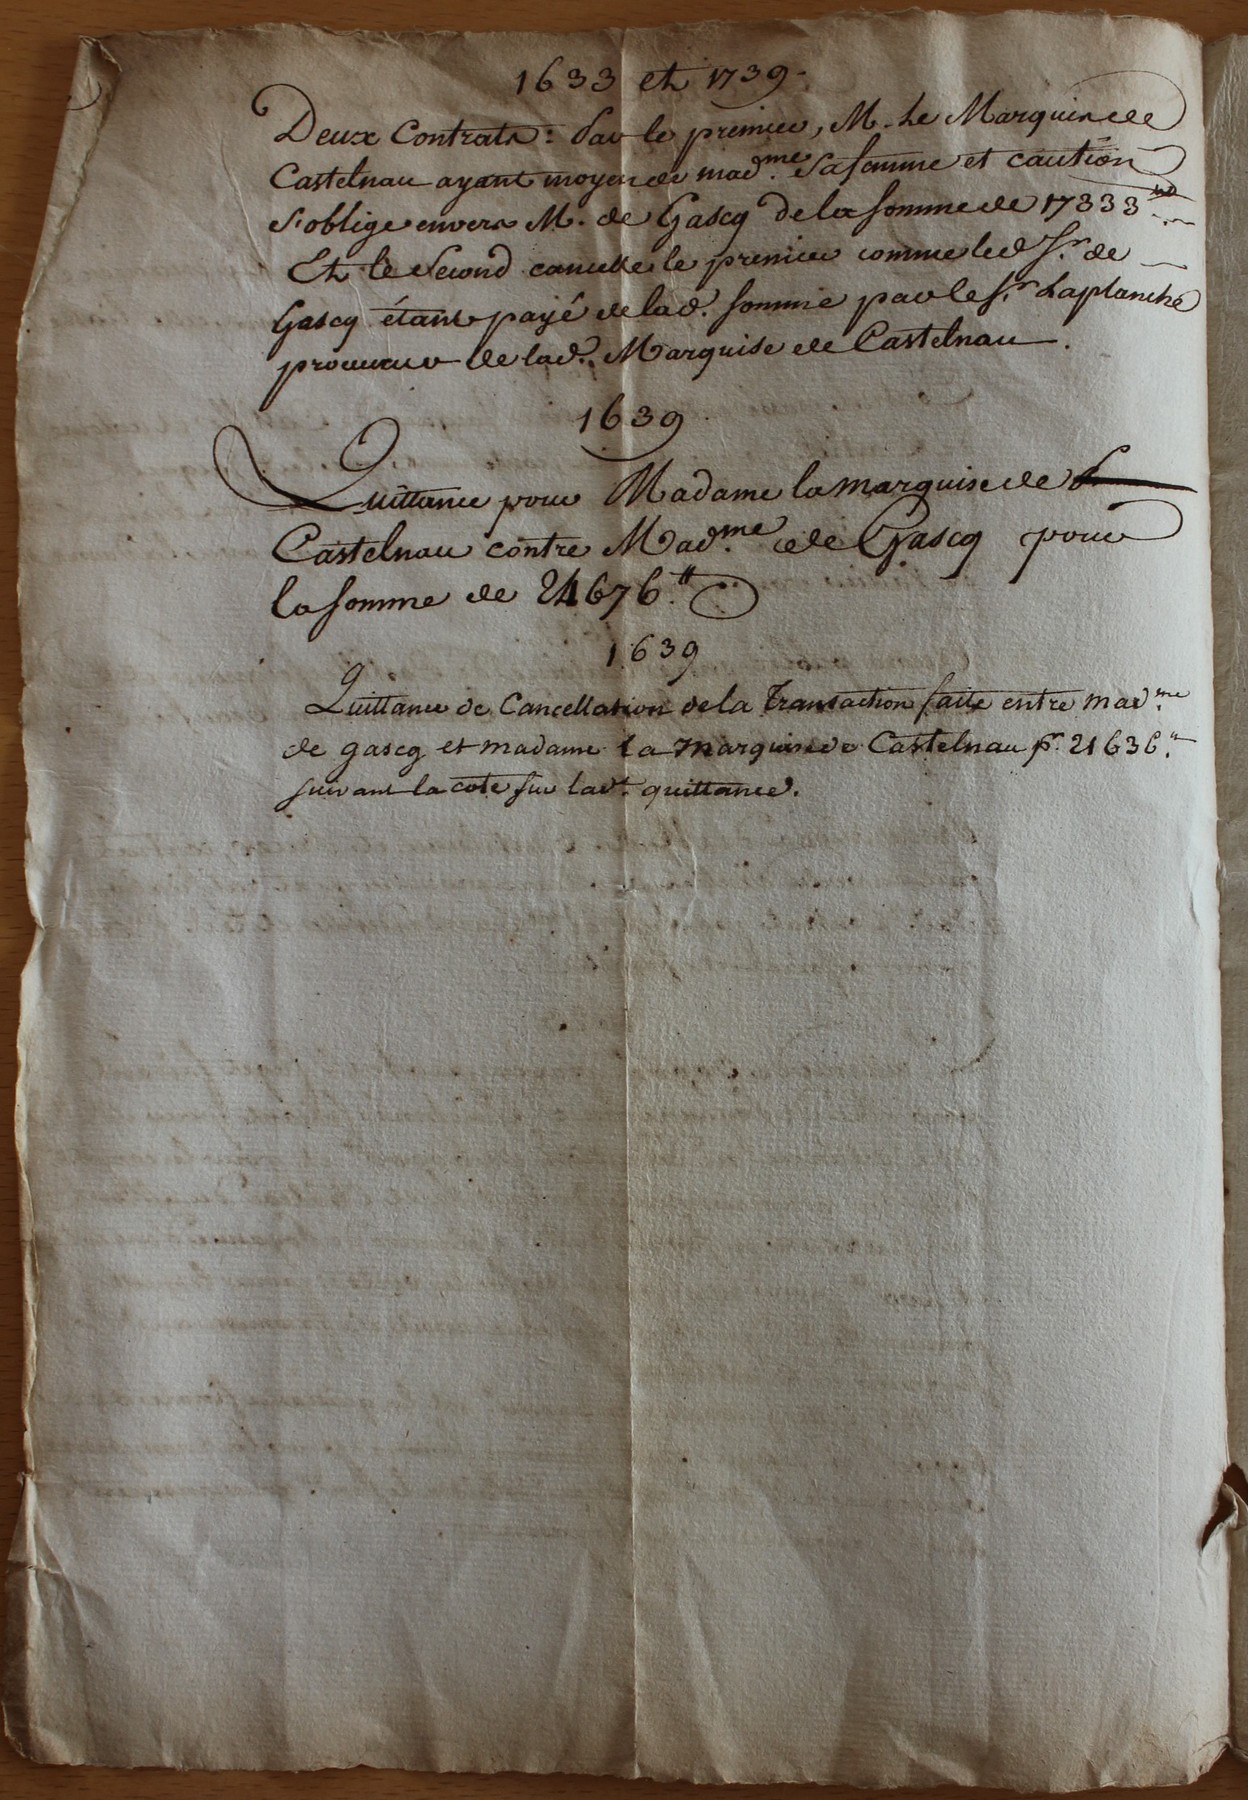 1633 et 1739.
Deux Contrats : Par le premier, M. Le Marquis de
Castelnau ayant moyen de mad.me Sa femme et caution
s'oblige envers M. de Gascq de la somme de 17333
Et le Second cancelle le premier comme led S.r de
Gascq étant payé de lad. somme par le S.r Laplanche
procureur de lad. Marquise de Castelnau.
1639
Quittance pour Madame la marquise de
Castelnau contre Mad.me de Gascq pour
la somme de 24676.tt
1639
Quittance de Cancellation de la Transaction faite entre mad.me
de gascq et madame la marquise de Castelnau pr. 21636.tt
suivant la cote sur lad.t quittance.